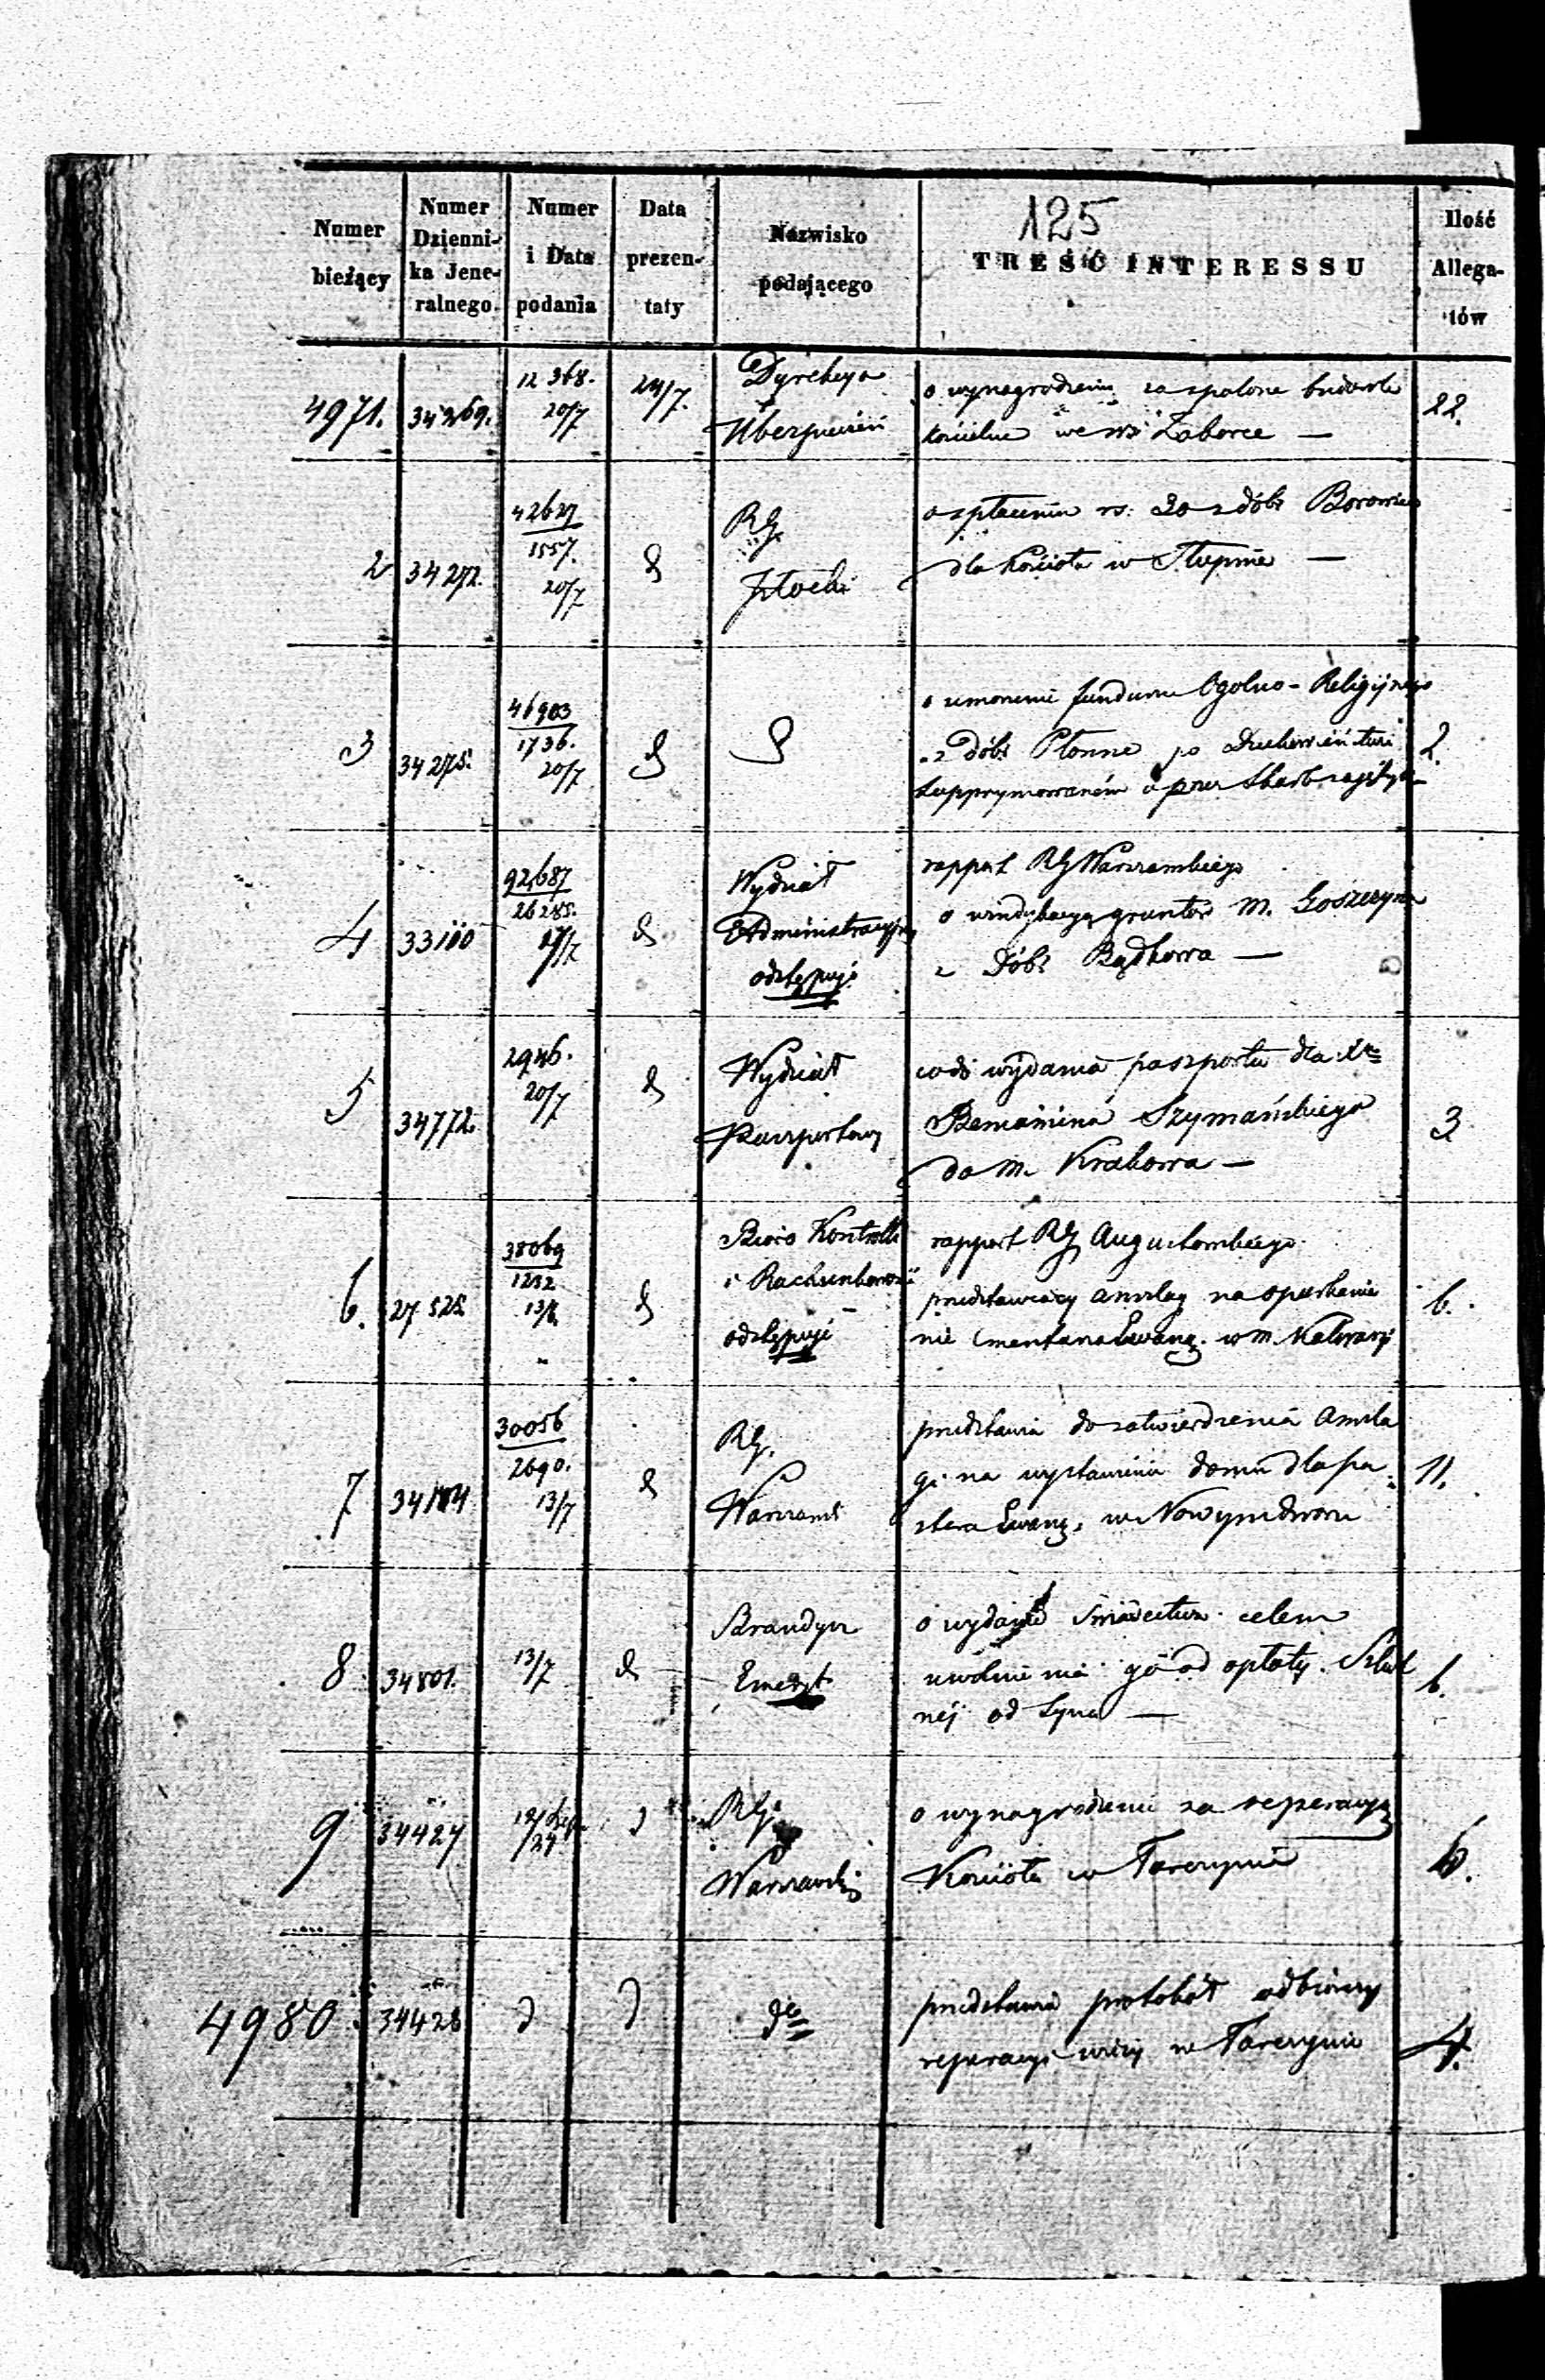 125
Numer bieżący
Numer Dzienni- ka Jene- ralnego.
Numer i Data podania
Data prezen- taty
Nazwisko podającego
TREŚĆ INTERESSU
Ilość Allega- tów
4971. 34269. 12368. 20/7 24/7. Dyrekcya Ubezpieczeń
o wynagrodzenie za spalone budowle
kościelne we wsi Zaborce —
22.
2 34272. 42627 1557. 20/7 d RG. Płocki
o spłacenie rs. 30 z dóbr Borowice
dla kościoła w Słupnie —
3 34275. 46903 1736. 20/7 d d
o umorzenie funduszu Ogolno-Religijnego
z dóbr Płonne po Duchowieństwie
supprymowaném przez Skarb
2.
4 33110 92687 26285. 17/7 d Wydział Administracyjny odstępuje
rapport RG Warszawskiego
o windykacyą gruntów M. Goszczyna
z dóbr Bądkowa —
5 34772. 2946. 20/7 d Wydział Paszportowy
co do wydania paszportu dla Xa
Beniamina Szymańskiego
do m. Krakowa —
3
6. 27525. 38069 1232 13/6. d Biuro Kontrolli i Rachunkowości odstępuje
rapport RG Augustowskiego
przedstawiający anszlag na oparkanie
nie Cmentarza Ewang. w m. Kalwaryi
6.
7 34184 30056 2690. 13/7 d RG. Warszaws
przedstawia do zatwierdzenia Anszla
gi na wystawienie domu dla pa
stora Ewang. w Nowymdworze
11.
8 34801. 13/7 d Brandysz Emeryt
o wydanie świadectwa celem
uwolnienia go od opłaty Szkol
néj od syna —
6.
9 34427 12/24 d RG. Warszawski
o wynagrodzenie za reperacyą
Kościoła w Tarczynie
6.
4980 34428 d d do
przedstawia protokół odbiorczy
reperacyi wieży w Tarczynie
4.